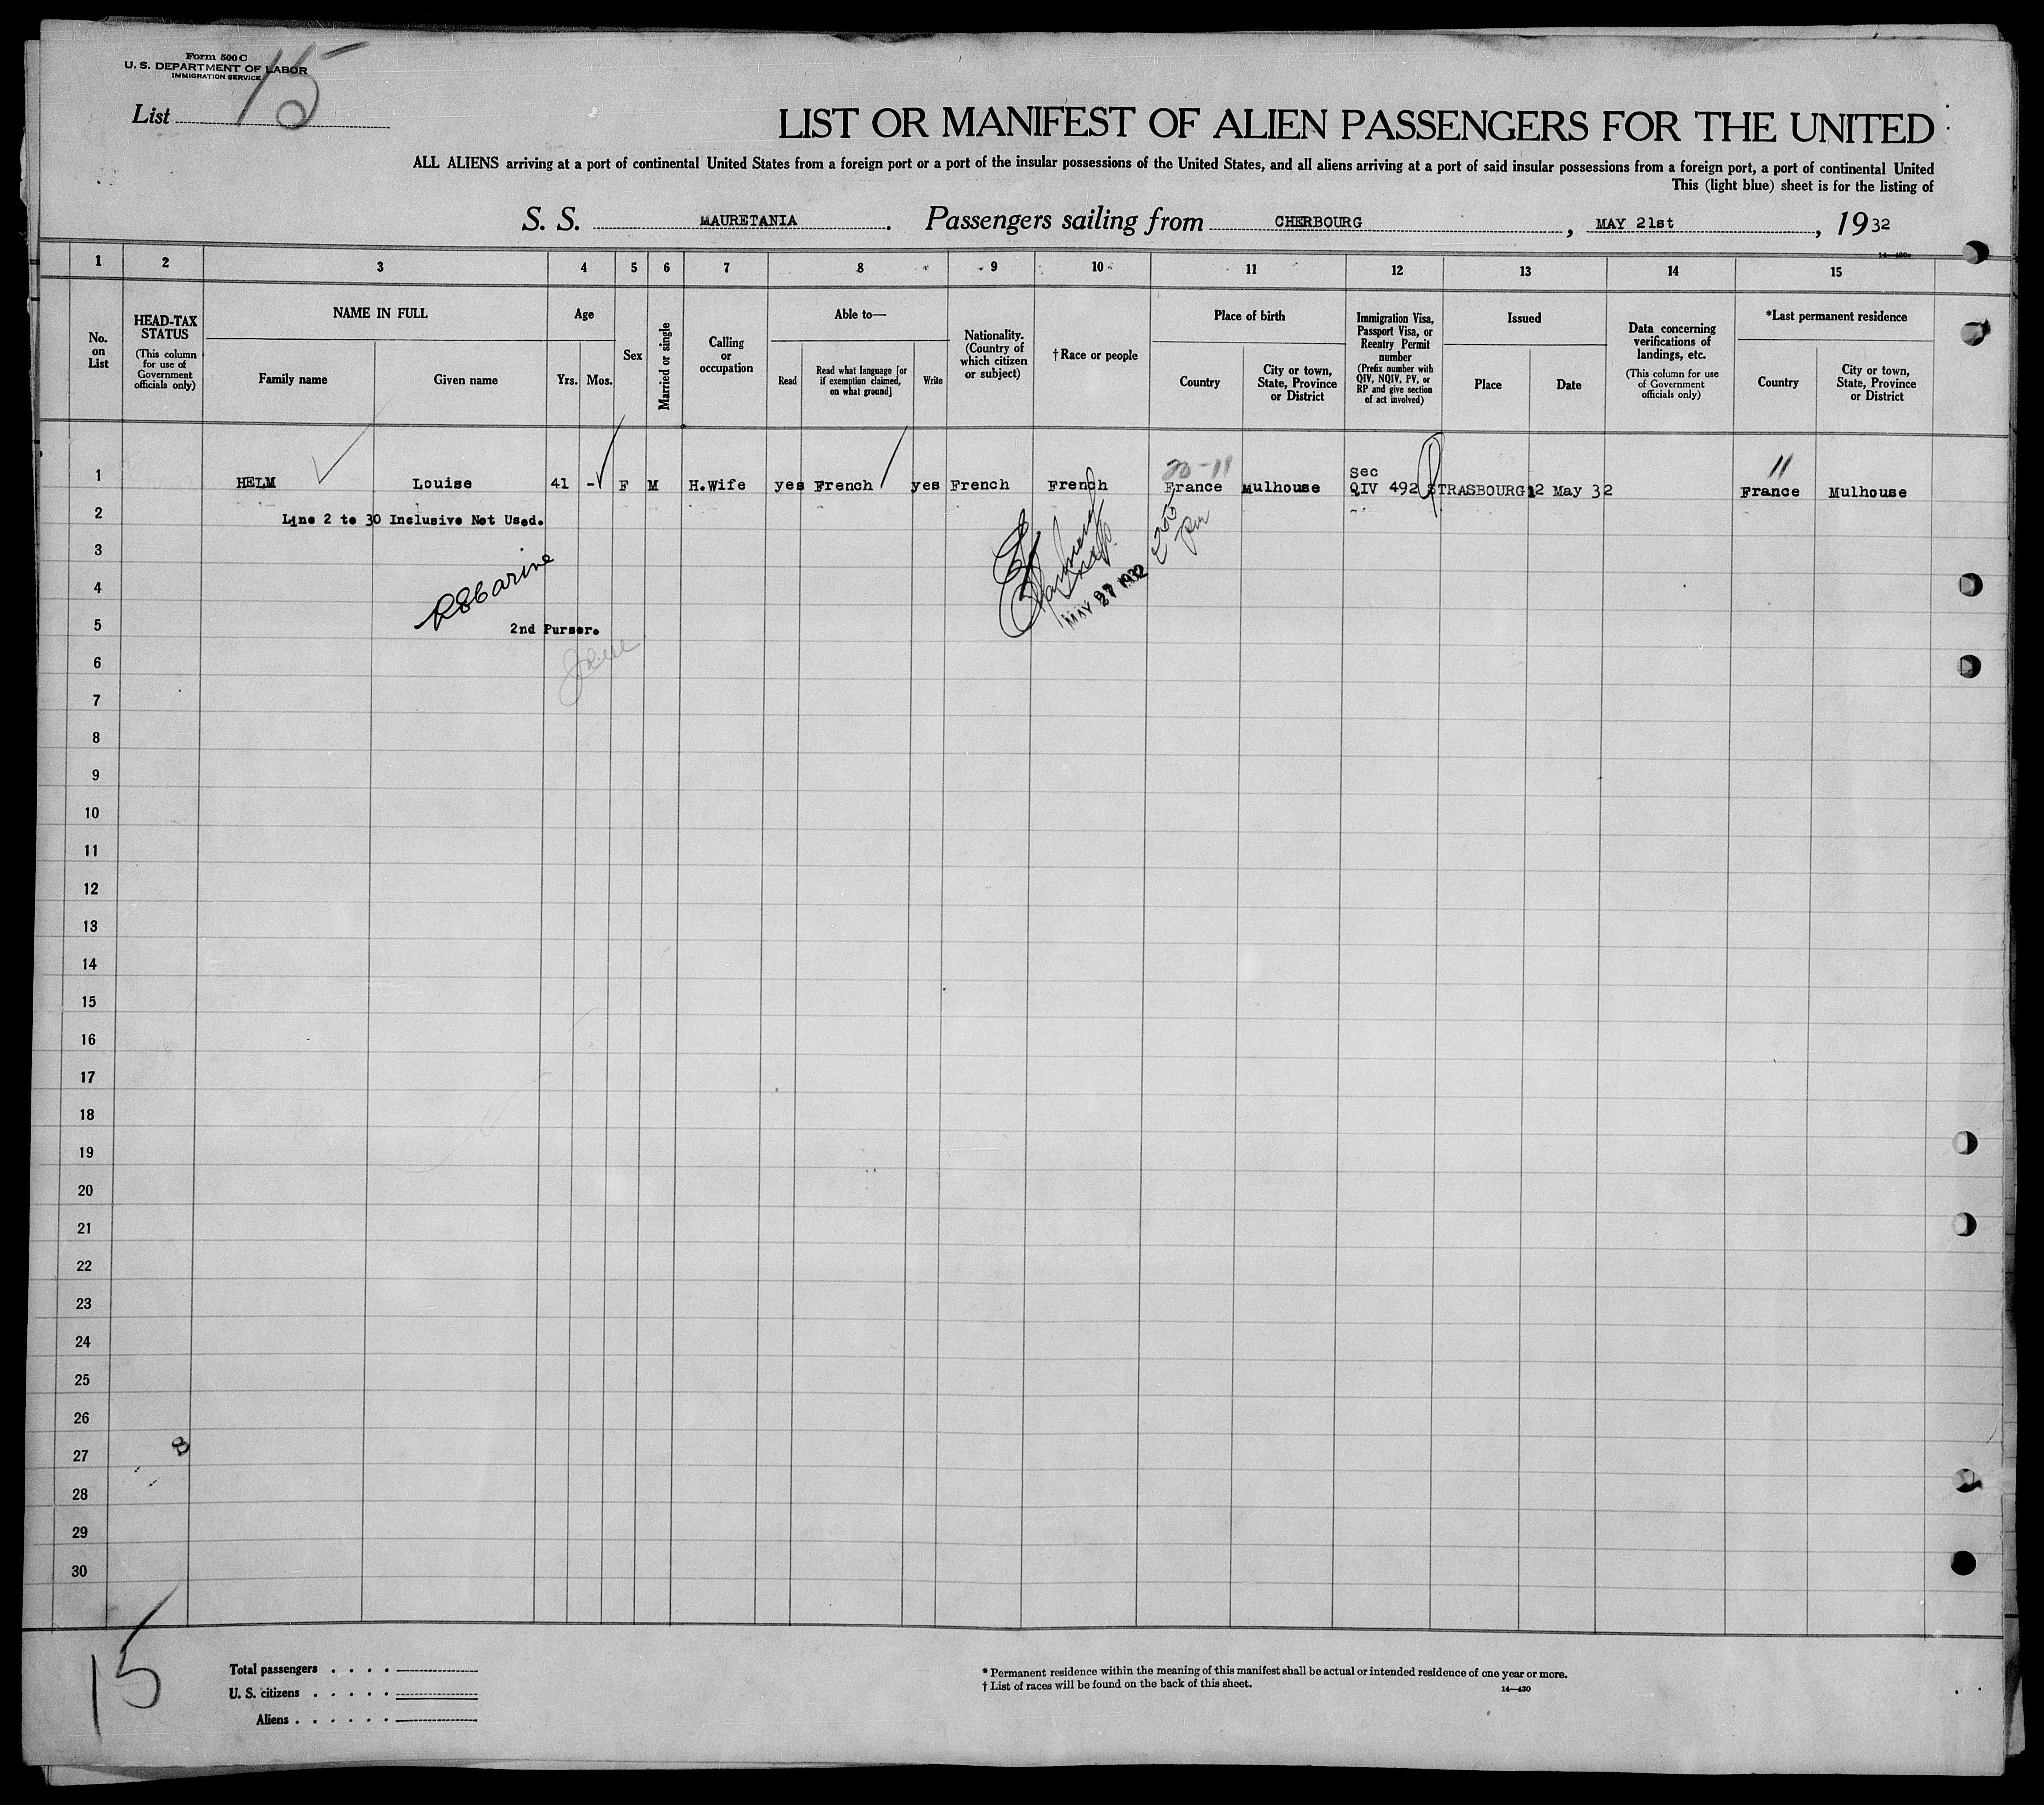 Form 500 C
U. S. DEPARTMENT OF LABOR
IMMIGRATION SERVICE
List 15
LIST OR MANIFEST OF ALIEN PASSENGERS FOR THE UNITED
ALL ALIENS arriving at a port of continental United States from a foreign port or a port of the insular possessions of the United States, and all aliens arriving at a port of said insular possessions from a foreign port, a port of continental United
This (light blue) sheet is for the listing of
S. S. MAURETANIA. Passengers sailing from CHERBOURG, MAY 21st, 1932
14—430c
1 2 3 4 5 6 7 8 9 10 11 12 13 14 15
No. on List
HEAD-TAX STATUS
(This column for use of Government officials only)
NAME IN FULL
Family name
Given name
Age
Yrs. Mos.
Sex
Married or single
Calling or occupation
Able to—
Read
Read what language [or if exemption claimed, on what ground]
Write
Nationality. (Country of which citizen or subject)
† Race or people
Place of birth
Country
City or town, State, Province or District
Immigration Visa, Passport Visa, or Reentry Permit number
(Prefix number with QIV, NQIV, PV, or RP and give section of act involved)
Issued
Place
Date
Data concerning verifications of landings, etc.
(This column for use of Government officials only)
*Last permanent residence
Country
City or town, State, Province or District
20-11
Sec
11
1 HELM Louise 41 - F M H.Wife yes French yes French French France Mulhouse QIV 492 STRASBOURG 12 May 32 France Mulhouse
2 Line 2 to 30 Inclusive Not Used.
3
4
MAY 27 1932
5 2nd Purser.
6
7
8
9
10
11
12
13
14
15
16
17
18
19
20
21
22
23
24
25
26
27
28
29
30
15
Total passengers . . . .
U. S. citizens . . . . .
Aliens . . . . . .
* Permanent residence within the meaning of this manifest shall be actual or intended residence of one year or more.
† List of races will be found on the back of this sheet.
14—430